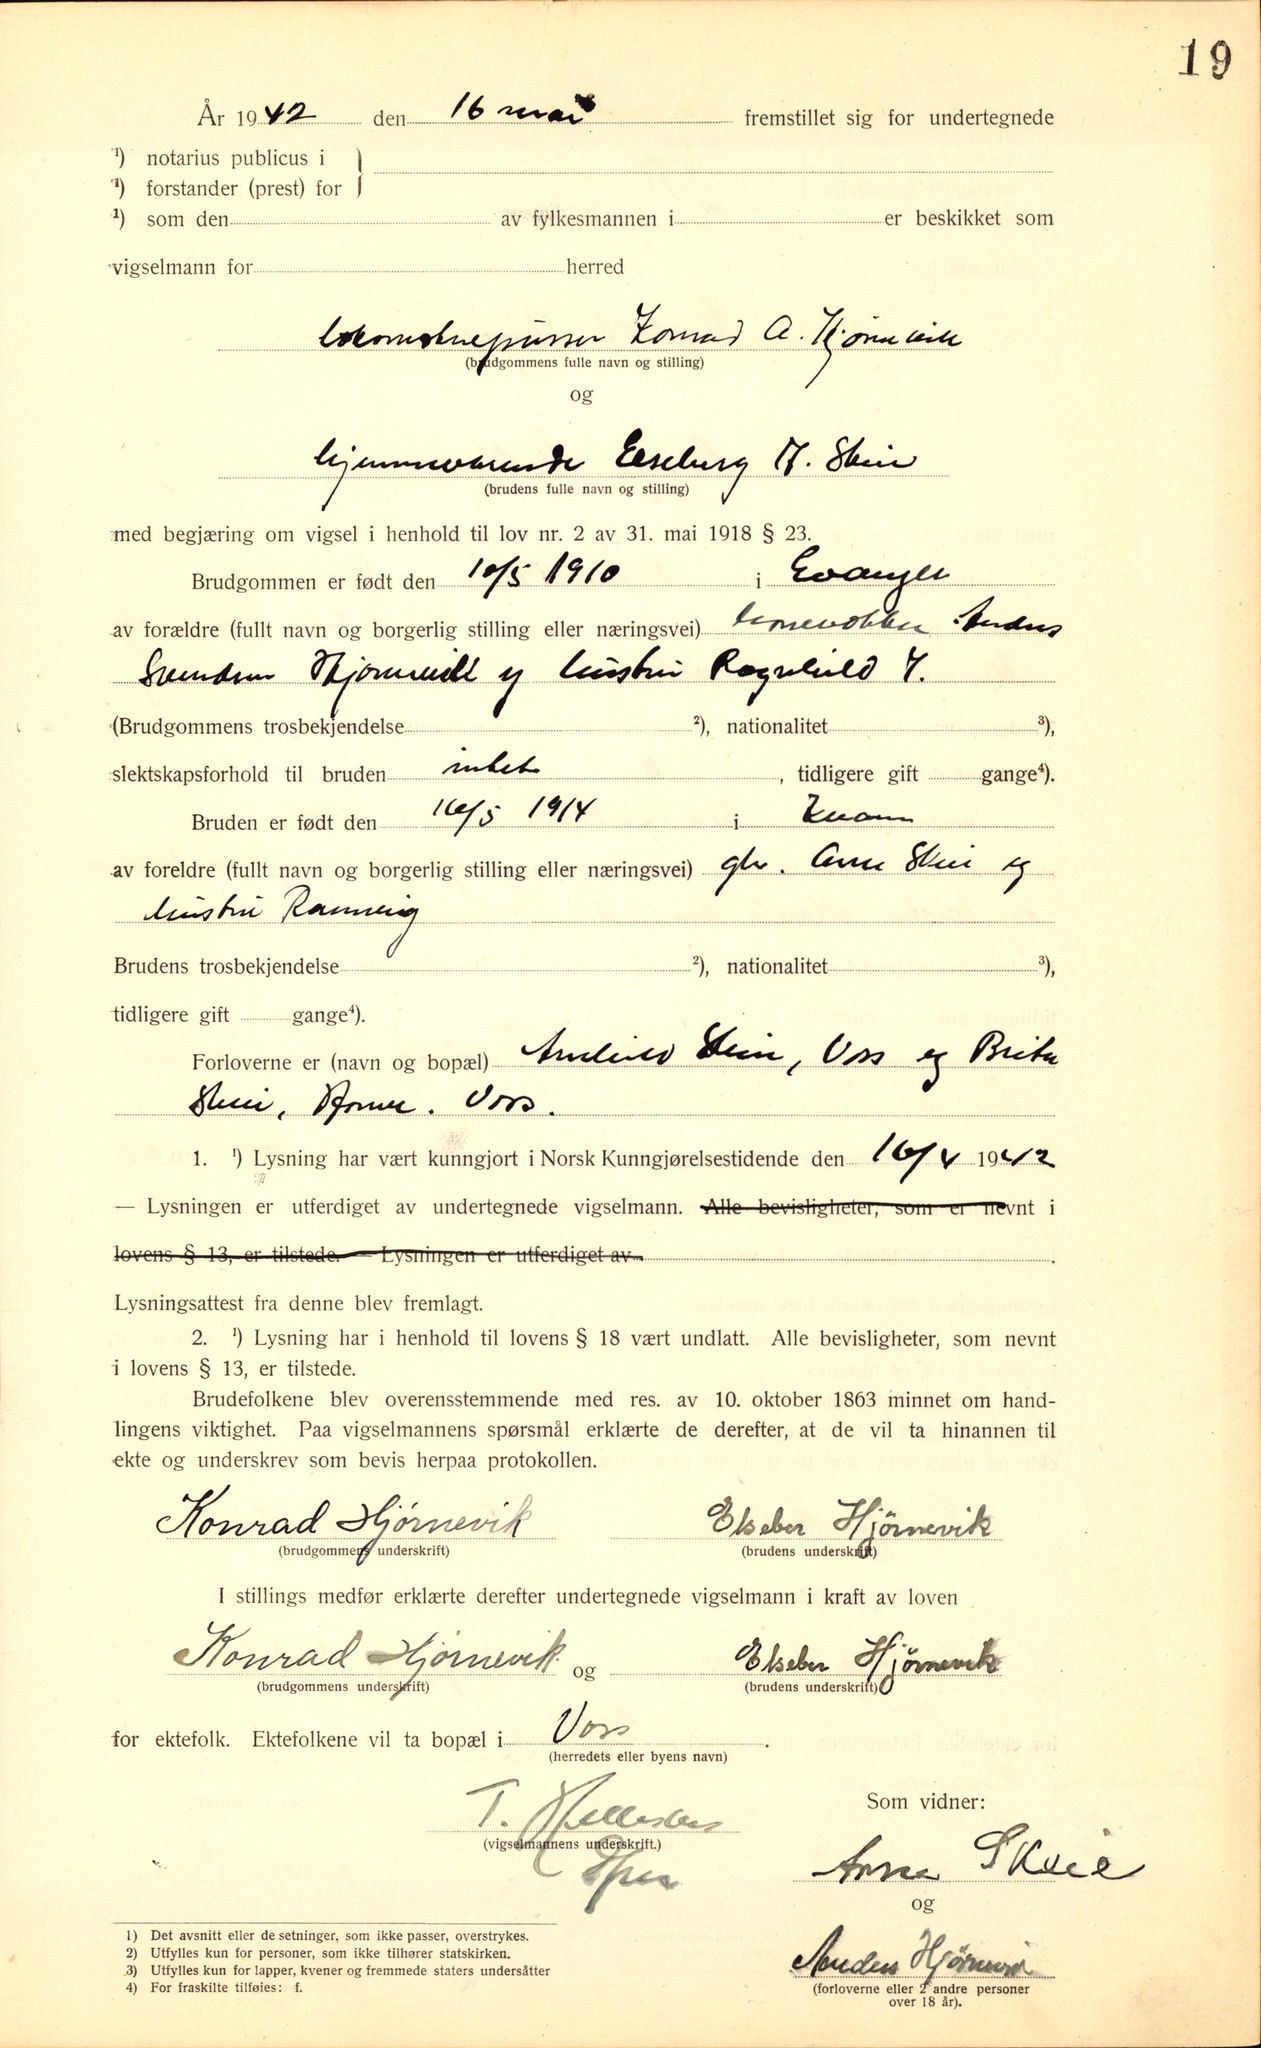 19
År 1942 den 16 mai fremstillet sig for undertegnede
¹) notarius publicus i
¹) forstander (prest) for
¹) som den av fylkesmannen i er beskikket som
vigselmann for herred
Konrad A. Hjørnevik
(brudgommens fulle navn og stilling)
og
hjemmeværende Elseburg A. Skeie
(brudens fulle navn og stilling)
med begjæring om vigsel i henhold til lov nr. 2 av 31. mai 1918 § 23.
Brudgommen er født den 10/5 1910 i Evanger
av forældre (fullt navn og borgerlig stilling eller næringsvei) Anders
Svendsen Hjørnevik og hustru Ragnhild
(Brudgommens trosbekjendelse ²), nationalitet ³),
slektskapsforhold til bruden intet , tidligere gift gange⁴).
Bruden er født den 16/5 1914 i
av foreldre (fullt navn og borgerlig stilling eller næringsvei) gbr. Arne Skeie og
hustru Rannveig
Brudens trosbekjendelse ²), nationalitet ³),
tidligere gift gange⁴).
Forloverne er (navn og bopæl) Skeie, Voss og Brita
Skeie, Voss.
1. ¹) Lysning har vært kunngjort i Norsk Kunngjørelsestidende den 16/4 1942
— Lysningen er utferdiget av undertegnede vigselmann. Alle bevisligheter, som er nevnt i
lovens § 13, er tilstede. — Lysningen er utferdiget av .
Lysningsattest fra denne blev fremlagt.
2. ¹) Lysning har i henhold til lovens § 18 vært undlatt. Alle bevisligheter, som nevnt
i lovens § 13, er tilstede.
Brudefolkene blev overensstemmende med res. av 10. oktober 1863 minnet om hand-
lingens viktighet. Paa vigselmannens spørsmål erklærte de derefter, at de vil ta hinannen til
ekte og underskrev som bevis herpaa protokollen.
Konrad Hjørnevik Elseber Hjørnevik
(brudgommens underskrift) (brudens underskrift)
I stillings medfør erklærte derefter undertegnede vigselmann i kraft av loven
Konrad Hjørnevik og Elseber Hjørnevik
(brudgommens underskrift) (brudens underskrift)
for ektefolk. Ektefolkene vil ta bopæl i Voss .
(herredets eller byens navn)
T.
(vigselmannens underskrift.)
Som vidner:
Arne Skeie
og
Anders Hjørnevik
(forloverne eller 2 andre personer
over 18 år).
1) Det avsnitt eller de setninger, som ikke passer, overstrykes.
2) Utfylles kun for personer, som ikke tilhører statskirken.
3) Utfylles kun for lapper, kvener og fremmede staters undersåtter
4) For fraskilte tilføies: f.